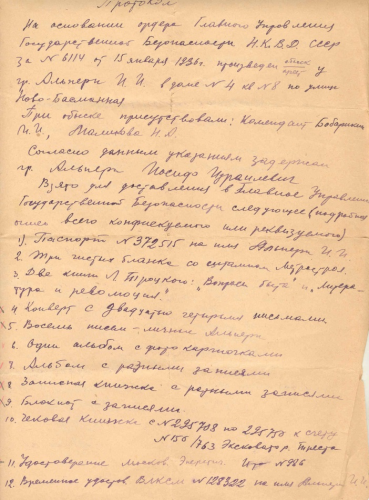 Протокол
На основании ордера Главного Управления
Государственной Безопасности Н.К.В.Д. СССР
за № 6114 от 15 января 1936г. произведен обыск у
гр. Альперн И. И. в доме № 4 кв № 8 по улице
Ново-Басманная
При обыске присутствовали: Комендант
И.И., Маликова Н.А.
Согласно данным указаниям задержан
гр. Альперн Иосиф Израилевич
Взято для доставления в Главное Управление
Государственной Безопасности следующее (подробная
опись всего конфискуемого или реквизируемого)
1). Паспорт № 372515 на имя Альперн И. И.
2. Три чистых бланка со
3. Две книги Л Троцкого: "Вопросы быта" и "Литера-
тура и революция".
4 Конверт с двадцатью четырьмя письмами
5. Восемь писем - личных Альперн.
6. Один альбом с фото карточками
7. Альбом с разными записями
8 Записная книжка с разными записями
9 Блокнот с записями.
10. Чековая книжка с № 225703 по 225750 к счету
№ 150/763 Эксковатор. Треста
11. Удостоверение Москов. Энергет. № 986
12. Временное удостов ВЛКСМ № 128322 на имя Альперн И. И.